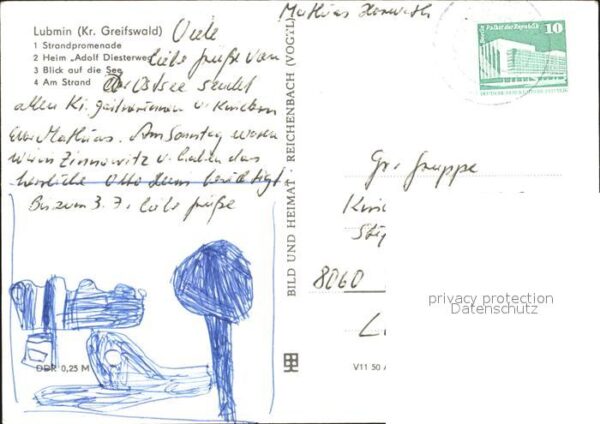 Lubmin (Kr. Greifswald)
1 Strandpromenade
2 Heim „Adolf Diesterweg
3 Blick auf die See
4 Am Strand
Viele
liebe Grüße von
der Ostsee sendet
allen Ki. gärtnerinnen u. Kindern
Euer Mathias. Am Sonntag waren
wir in Zinnowitz u. haben das
herrliche Otto Heim besichtigt
Bis zum 3. 7. liebe Grüße
DDR 0,25 M
BILD UND HEIMAT REICHENBACH (VOGTL)
Mathias
Palast der Republik
10
Gr. Gruppe
8060
V11 50
privacy protection
Datenschutz